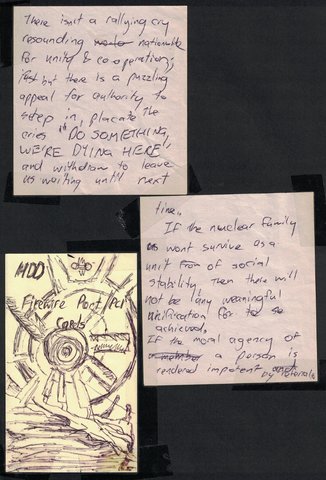 There isn't a rallying cry
resounding nationwide
for unity & co-operation,
but there is a puzzling
appeal for authority to
step in, placate the
cries "DO SOMETHING,
WE'RE DYING HERE"
and withdraw to leave
us waiting until next
time..
If the nuclear family
wont survive as a
unit of social
stability, then there will
not be any meaningful
unification for to
achieved,
If the moral agency of
a person is
rendered impotent
HDD
Firewire Port/PCI
Cards